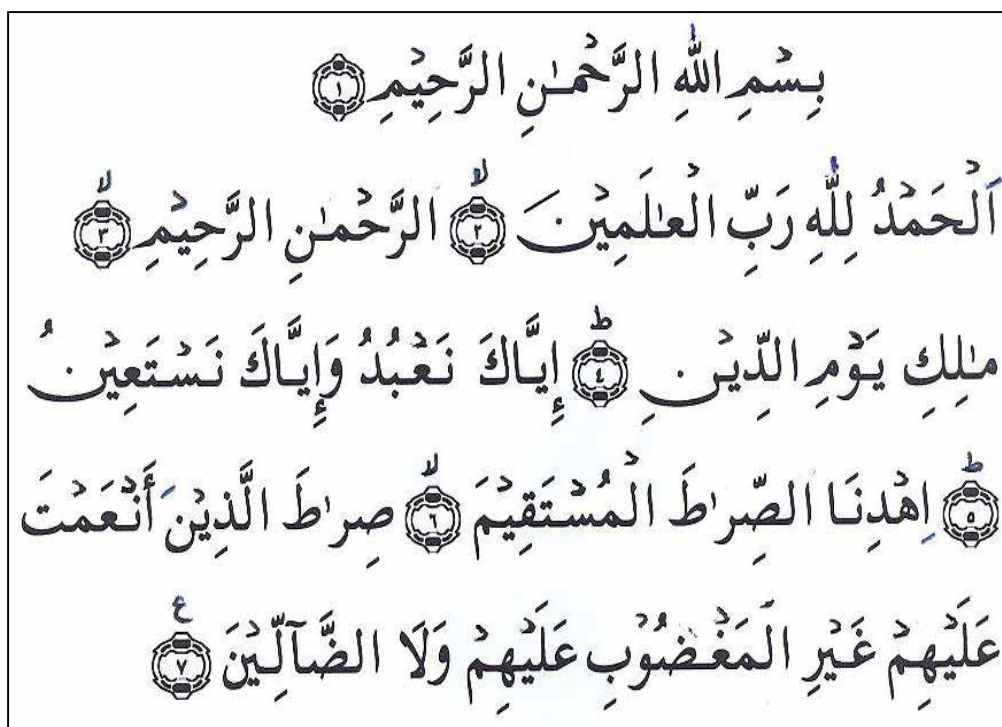 بِسْمِ اللّٰهِ الرَّحْمٰنِ الرَّحِيْمِ ﴿١﴾
اَلْحَمْدُ لِلّٰهِ رَبِّ الْعٰلَمِيْنَ ﴿٢﴾ۙ الرَّحْمٰنِ الرَّحِيْمِ ﴿٣﴾ۙ
مٰلِكِ يَوْمِ الدِّيْنِ ﴿٤﴾ؕ إِيَّاكَ نَعْبُدُ وَإِيَّاكَ نَسْتَعِيْنُ
﴿٥﴾ؕ اِهْدِنَا الصِّرٰطَ الْمُسْتَقِيْمَ ﴿٦﴾ۙ صِرٰطَ الَّذِيْنَ أَنْعَمْتَ
عَلَيْهِمْ غَيْرِ الْمَغْضُوْبِ عَلَيْهِمْ وَلَا الضَّآلِّيْنَ ﴿٧﴾ ع